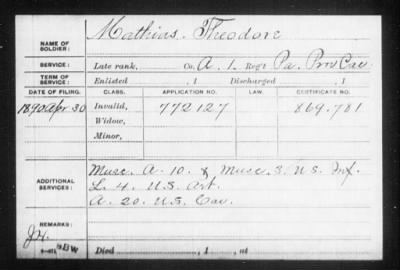 NAME OF SOLDIER: Mathias, Theodore
SERVICE: Late rank, Co. A. 1. Reg't Pa. Prov Cav
TERM OF SERVICE: Enlisted , 1 Discharged , 1
DATE OF FILING. CLASS. APPLICATION NO. LAW. CERTIFICATE NO.
1890 Apr 30 Invalid, 772127 869.781
Widow,
Minor,
ADDITIONAL SERVICES: Musc. A. 10. & Musc. S. U S. Inf.
L. 4. U.S. Art.
A. 20. U.S. Cav.
REMARKS:
BW
Died , 1 , at